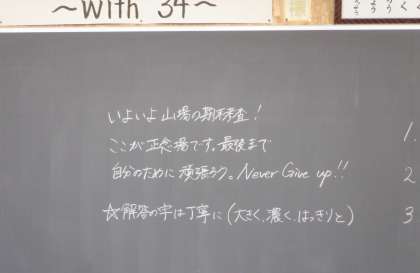 ～With 34～
いよいよ山場の期末考査！
ここが正念場です。最後まで
自分のために頑張ろう。Never Give up!!
☆解答の字は丁寧に(大きく、濃く、はっきりと)
1.
2
3